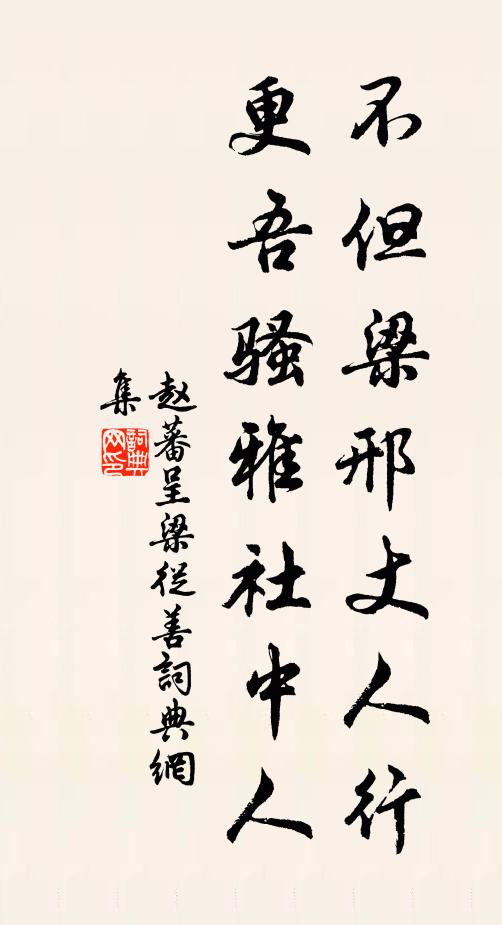 不但梁邢丈人行
更吾骚雅社中人
赵蕃呈梁從善詞典網
集
詞典网印